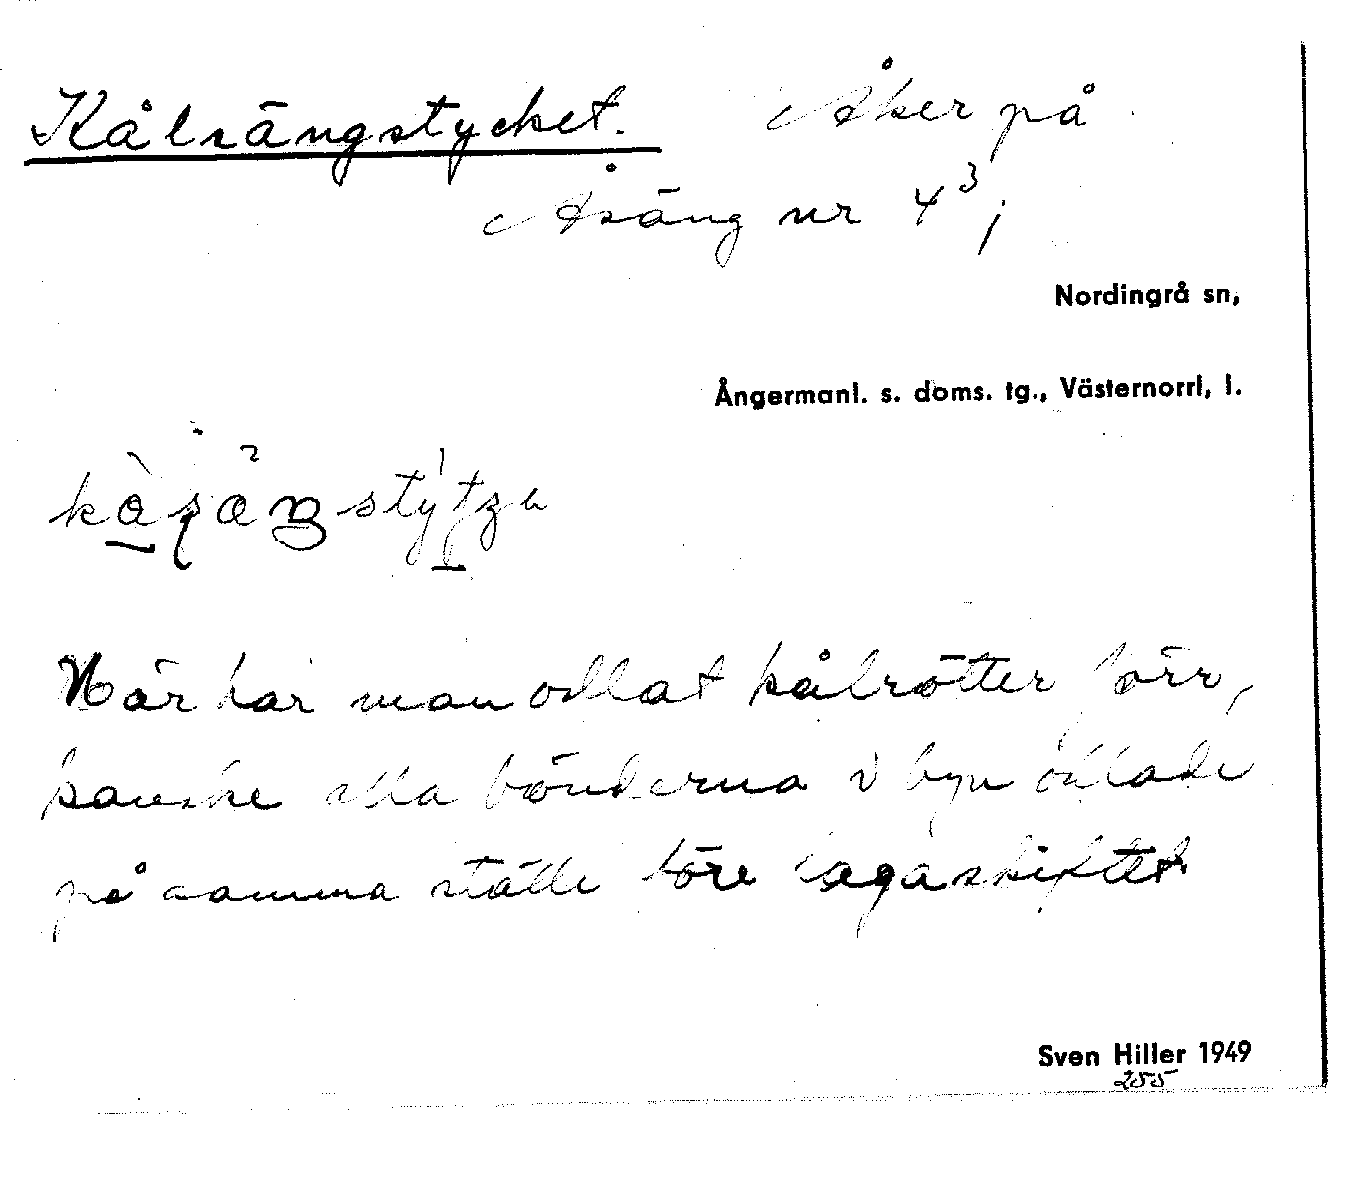 Kålsängstycket. Åker på
Åsäng nr 4³;
Nordingrå sn,
Ångermanl. s. doms. tg., Västernorrl, l.
Här har man odlat kålrötter förr,
kanske alla bönderna i byn odlade
på samma ställe före lagaskiftet.
Sven Hiller 1949
255